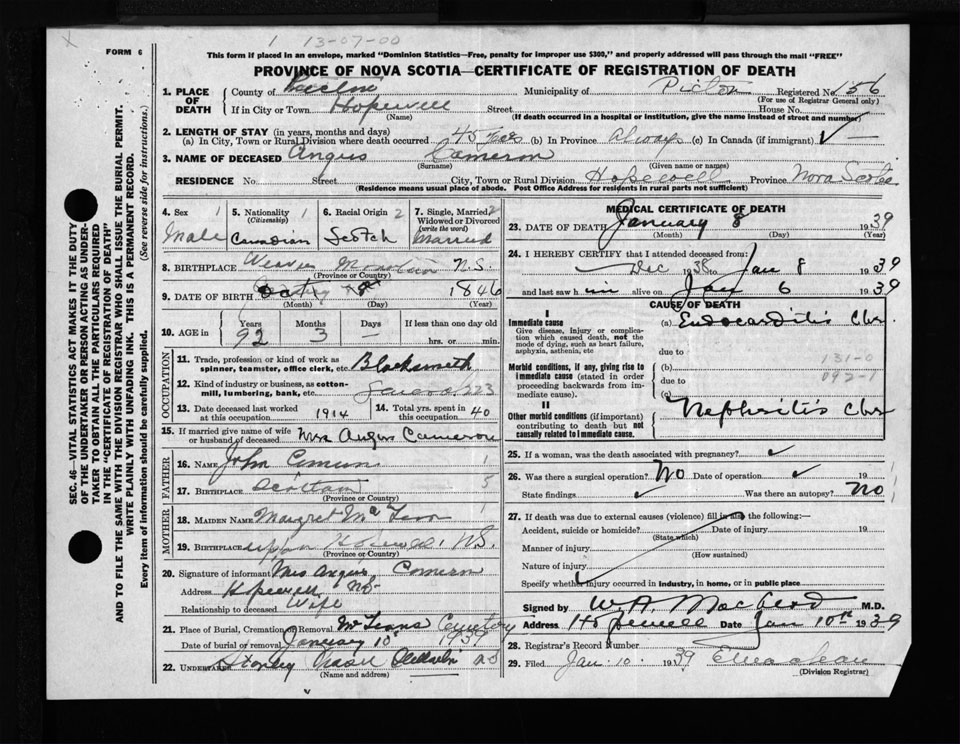 1 13-07-00
FORM 6
This form if placed in an envelope, marked "Dominion Statistics—Free, penalty for improper use $300," and properly addressed will pass through the mail "FREE"
PROVINCE OF NOVA SCOTIA—CERTIFICATE OF REGISTRATION OF DEATH
SEC. 46—VITAL STATISTICS ACT MAKES IT THE DUTY
OF THE UNDERTAKER OR PERSON ACTING AS UNDER-
TAKER TO OBTAIN ALL THE PARTICULARS REQUIRED
IN THE "CERTIFICATE OF REGISTRATION OF DEATH"
AND TO FILE THE SAME WITH THE DIVISION REGISTRAR WHO SHALL ISSUE THE BURIAL PERMIT.
WRITE PLAINLY WITH UNFADING INK. THIS IS A PERMANENT RECORD.
Every item of information should be carefully supplied. (See reverse side for instructions.)
1. PLACE OF DEATH County of Pictou Municipality of Pictou Registered No. 156
(For use of Registrar General only)
If in City or Town Hopewell Street House No.
(Name) (If death occurred in a hospital or institution, give name instead of street and number)
2. LENGTH OF STAY (in years, months and days)
(a) In City, Town or Rural Division where death occurred 45 (b) In Province Always (c) In Canada (if immigrant)
3. NAME OF DECEASED Angus Cameron
(Surname) (Given name or names)
RESIDENCE No. Street City, Town or Rural Division Hopewell Province Nova Scotia
(Residence means usual place of abode. Post Office Address for residents in rural parts not sufficient)
4. Sex 1 Male
5. Nationality 1 (Citizenship) Canadian
6. Racial Origin 2 Scotch
7. Single, Married, Widowed or Divorced (write the word) 2 Married
8. BIRTHPLACE N.S.
(Province or Country)
9. DATE OF BIRTH 1846
(Month) (Day) (Year)
10. AGE in Years 92 Months 3 Days – If less than one day old hrs. or min.
OCCUPATION
11. Trade, profession or kind of work as spinner, teamster, office clerk, etc. Blacksmith
12. Kind of industry or business, as cotton-mill, lumbering, bank, etc. 223
13. Date deceased last worked at this occupation. 1914 14. Total yrs. spent in this occupation 40
15. If married give name of wife or husband of deceased Mrs Angus Cameron
FATHER
16. NAME John 1
17. BIRTHPLACE 5
(Province or Country)
MOTHER
18. MAIDEN NAME 1
19. BIRTHPLACE N.S.
(Province or Country)
20. Signature of informant Mrs Angus Cameron
Address Hopewell NS
Relationship to deceased Wife
21. Place of Burial, Cremation or Removal Cemetery
Date of burial or removal January 10 1939
22. UNDERTAKER
(Name and address)
MEDICAL CERTIFICATE OF DEATH
23. DATE OF DEATH January 8 1939
(Month) (Day) (Year)
24. I HEREBY CERTIFY that I attended deceased from:
Dec 1938 to Jan 8 1939
and last saw him alive on Jan 6 1939
CAUSE OF DEATH
I
Immediate cause (a) Endocarditis Chr.
Give disease, injury or complica-
tion which caused death, not the
mode of dying, such as heart failure,
asphyxia, asthenia, etc due to
131-0
Morbid conditions, if any, giving rise to (b)
immediate cause (stated in order due to 092-1
proceeding backwards from im-
mediate cause). (c)
II
Other morbid conditions (if important) Nephritis Chr
contributing to death but not
causally related to immediate cause.
25. If a woman, was the death associated with pregnancy?
26. Was there a surgical operation? No Date of operation 19
State findings Was there an autopsy? No
27. If death was due to external causes (violence) fill in also the following:—
Accident, suicide or homicide? Date of injury 19
(State which)
Manner of injury
(How sustained)
Nature of injury
Specify whether injury occurred in industry, in home, or in public place
Signed by M.D.
Address Hopewell Date Jan 10th 1939
28. Registrar's Record Number
29. Filed Jan. 10. 1939
(Division Registrar)